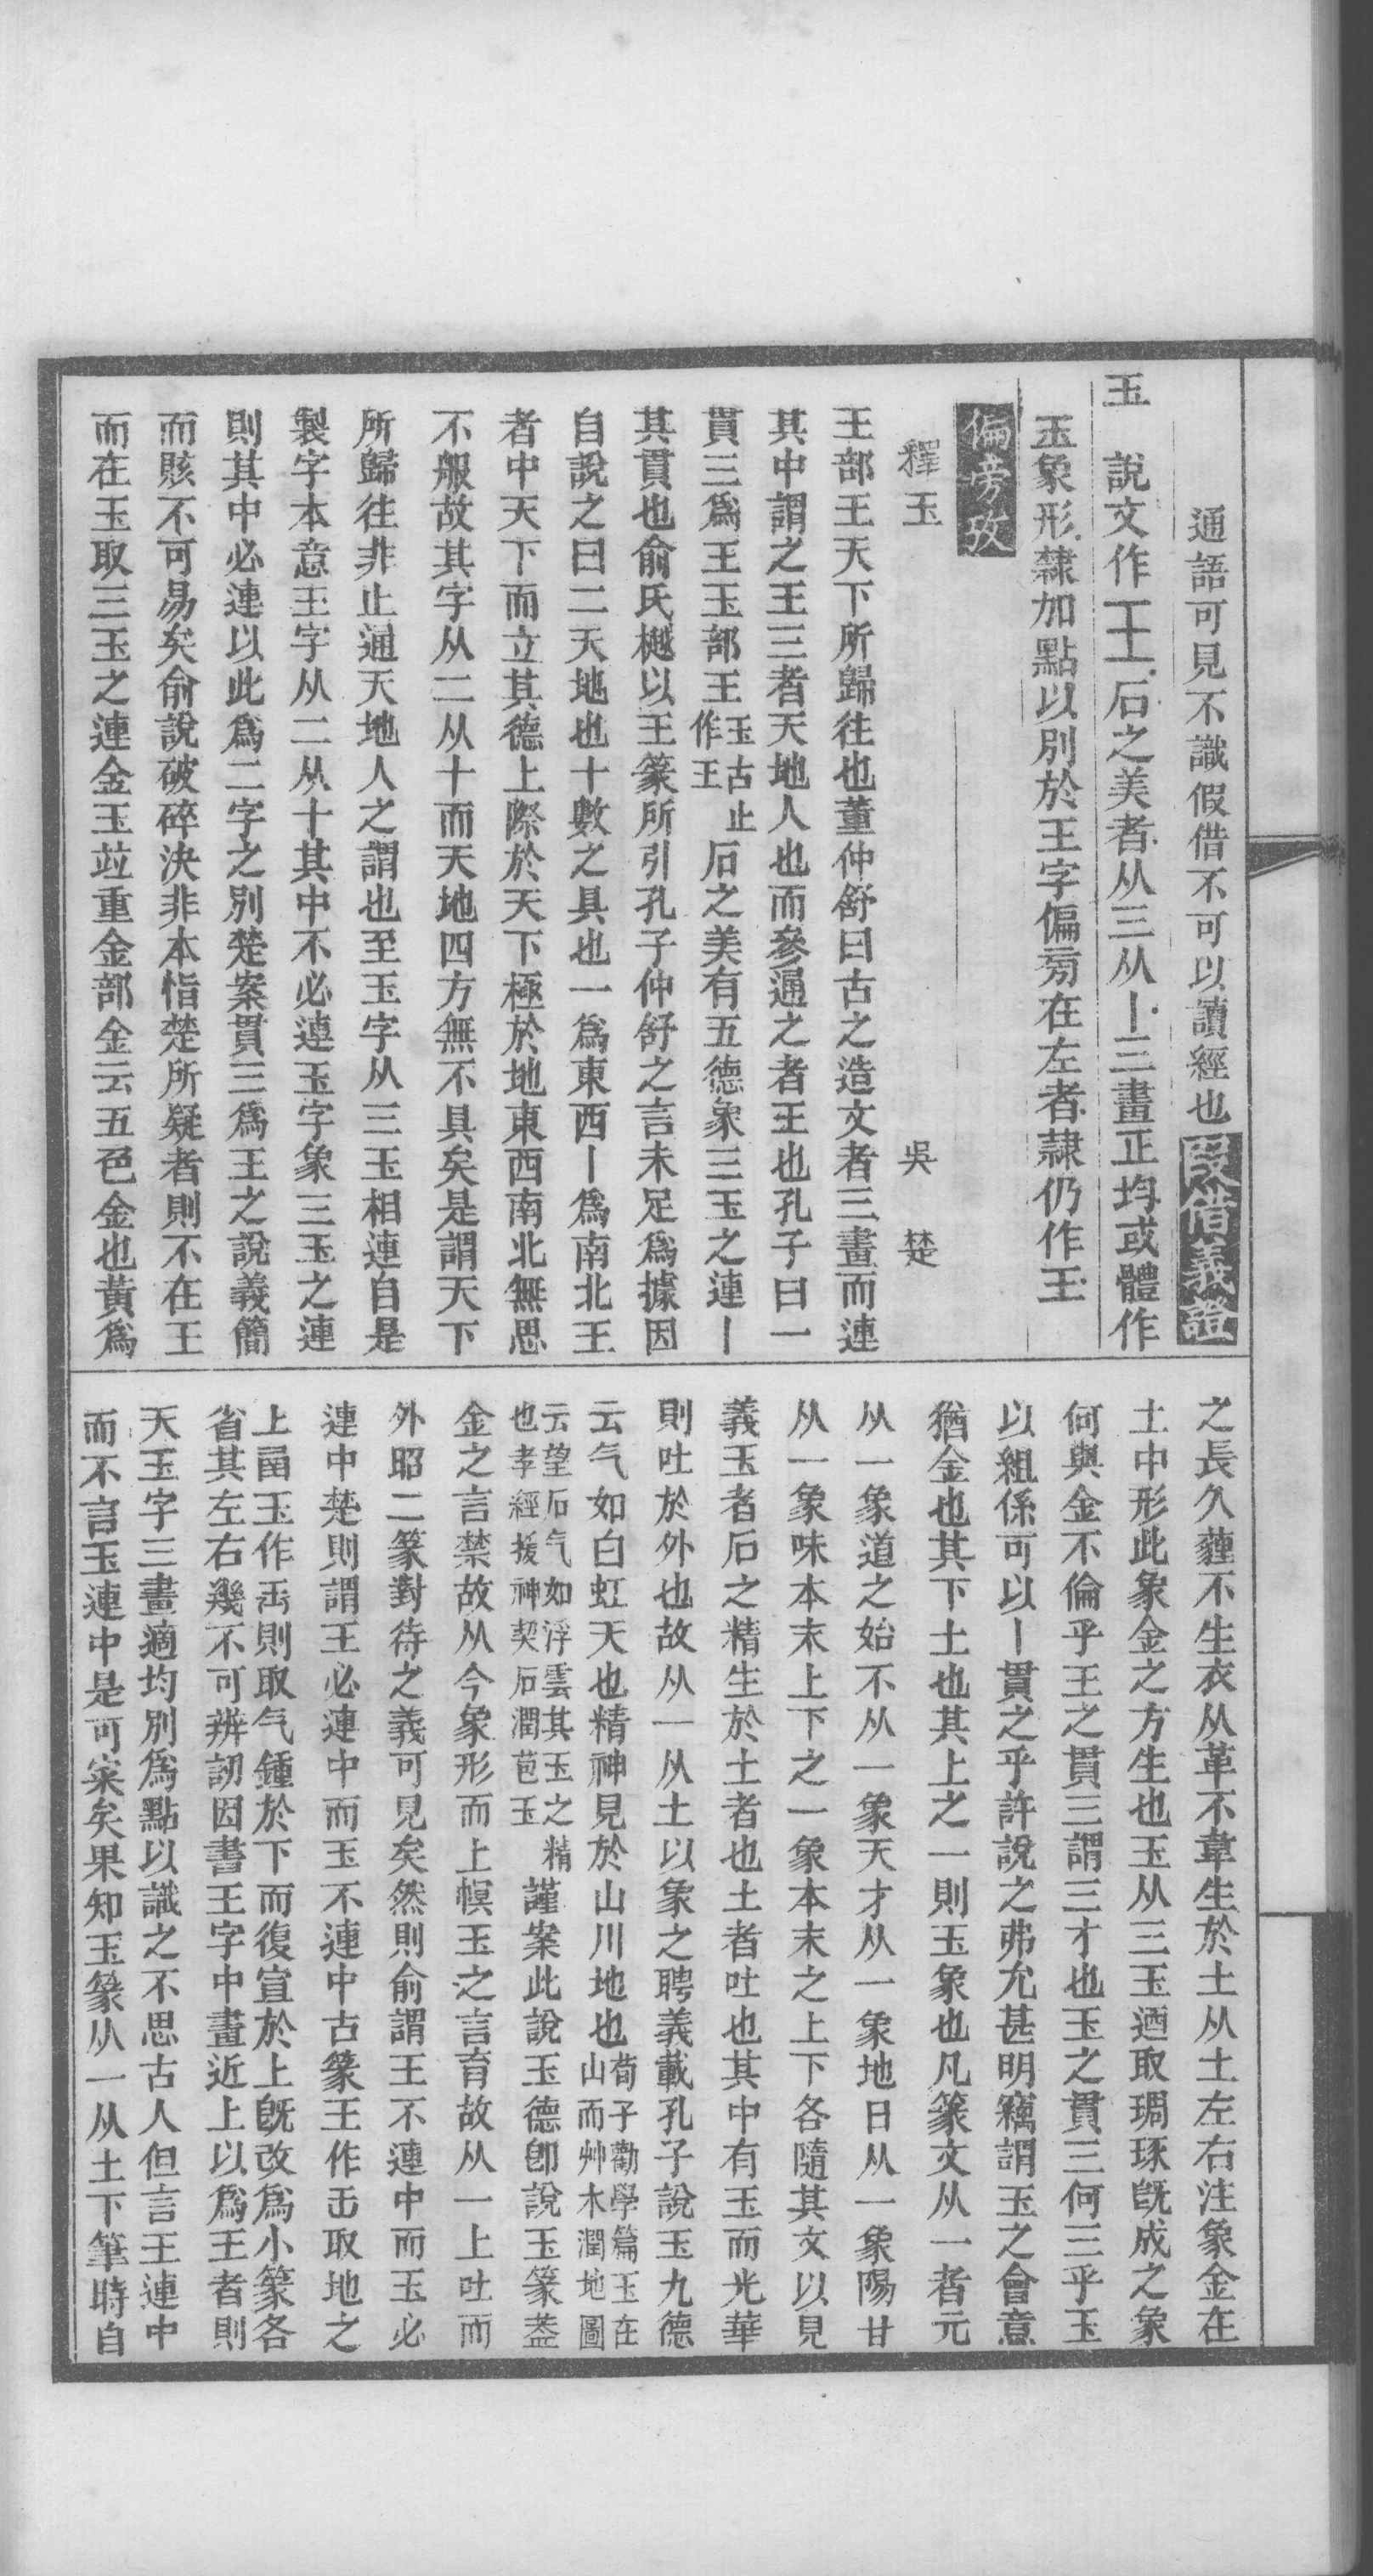 通語可見不識假借不可以讀經也叚借義證
玉　說文作王石之美者从三从丨三畫正均或體作
玉象形隸加點以別於王字偏旁在左者隸仍作王
偏旁攷
釋玉　吳楚
王部王天下所歸往也董仲舒曰古之造文者三畫而連
其中謂之王三者天地人也而參通之者王也孔子曰一
貫三爲王玉部王玉古止作王石之美有五德象三玉之連丨
其貫也俞氏樾以王篆所引孔子仲舒之言未足爲據因
自說之曰二天地也十數之具也一爲東西丨爲南北王
者中天下而立其德上際於天下極於地東西南北無思
不服故其字从二从十而天地四方無不具矣是謂天下
所歸往非止通天地人之謂也至玉字从三玉相連自是
製字本意王字从二从十其中不必連玉字象三玉之連
則其中必連以此爲二字之別楚案貫三爲王之說義簡
而賅不可易矣俞說破碎決非本恉楚所疑者則不在王
而在玉取三玉之連金玉竝重金部金云五色金也黃爲
之長久薶不生衣从革不韋生於土从土左右注象金在
土中形此象金之方生也玉从三玉迺取琱琢旣成之象
何與金不倫乎王之貫三謂三才也玉之貫三何三乎玉
以組係可以丨貫之乎許說之弗允甚明竊謂玉之會意
猶金也其下土也其上之一則玉象也凡篆文从一者元
从一象道之始不从一象天才从一象地日从一象陽甘
从一象味本末上下之一象本末之上下各隨其文以見
義玉者石之精生於土者也土者吐也其中有玉而光華
則吐於外也故从一从土以象之聘義載孔子說玉九德
云气如白虹天也精神見於山川地也荀子勸學篇玉在山而艸木潤地圖
云望石气如浮雲其玉之精也孝經援神契石潤苞玉謹案此說玉德卽說玉篆葢
金之言禁故从今象形而上幎玉之言育故从一上吐而
外昭二篆對待之義可見矣然則俞謂王不連中而玉必
連中楚則謂王必連中而玉不連中古篆王作𠙻取地之
上畐玉作𠙻則取气鍾於下而復宣於上旣改爲小篆各
省其左右幾不可辨訒因書王字中畫近上以爲王者則
天玉字三畫適均別爲點以識之不思古人但言王連中
而不言玉連中是可案矣果知玉篆从一从土下筆時自